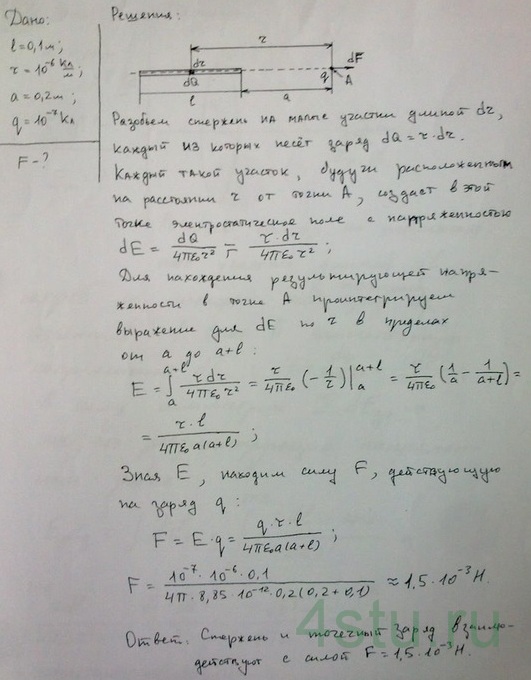 Дано:
l = 0,1 м;
τ = 10⁻⁶ Кл/м;
a = 0,2 м;
q = 10⁻⁷ Кл
F - ?
Решения:
r
dr
dF
dQ
q
A
l
a
Разобьем стержень на малые участки длиной dr,
каждый из которых несёт заряд dQ = τ·dr.
Каждый такой участок, будучи расположенным
на расстоянии r от точки A, создаст в этой
точке электростатическое поле с напряженностью
dE = dQ/4πε₀r² = τ·dr/4πε₀r²;
Для нахождения результирующей напря-
женности в точке A проинтегрируем
выражение для dE по r в пределах
от a до a+l:
E = ∫ₐᵃ⁺ˡ τdr/4πε₀r² = τ/4πε₀ (-1/r)|ₐᵃ⁺ˡ = τ/4πε₀ (1/a - 1/(a+l)) =
= τ·l/4πε₀a(a+l);
Зная E, находим силу F, действующую
на заряд q:
F = E·q = q·τ·l/4πε₀a(a+l);
F = 10⁻⁷·10⁻⁶·0,1/4π·8,85·10⁻¹²·0,2(0,2+0,1) ≈ 1,5·10⁻³ Н.
Ответ: Стержень и точечный заряд взаимо-
действуют с силой F = 1,5·10⁻³ Н.
4stu.ru